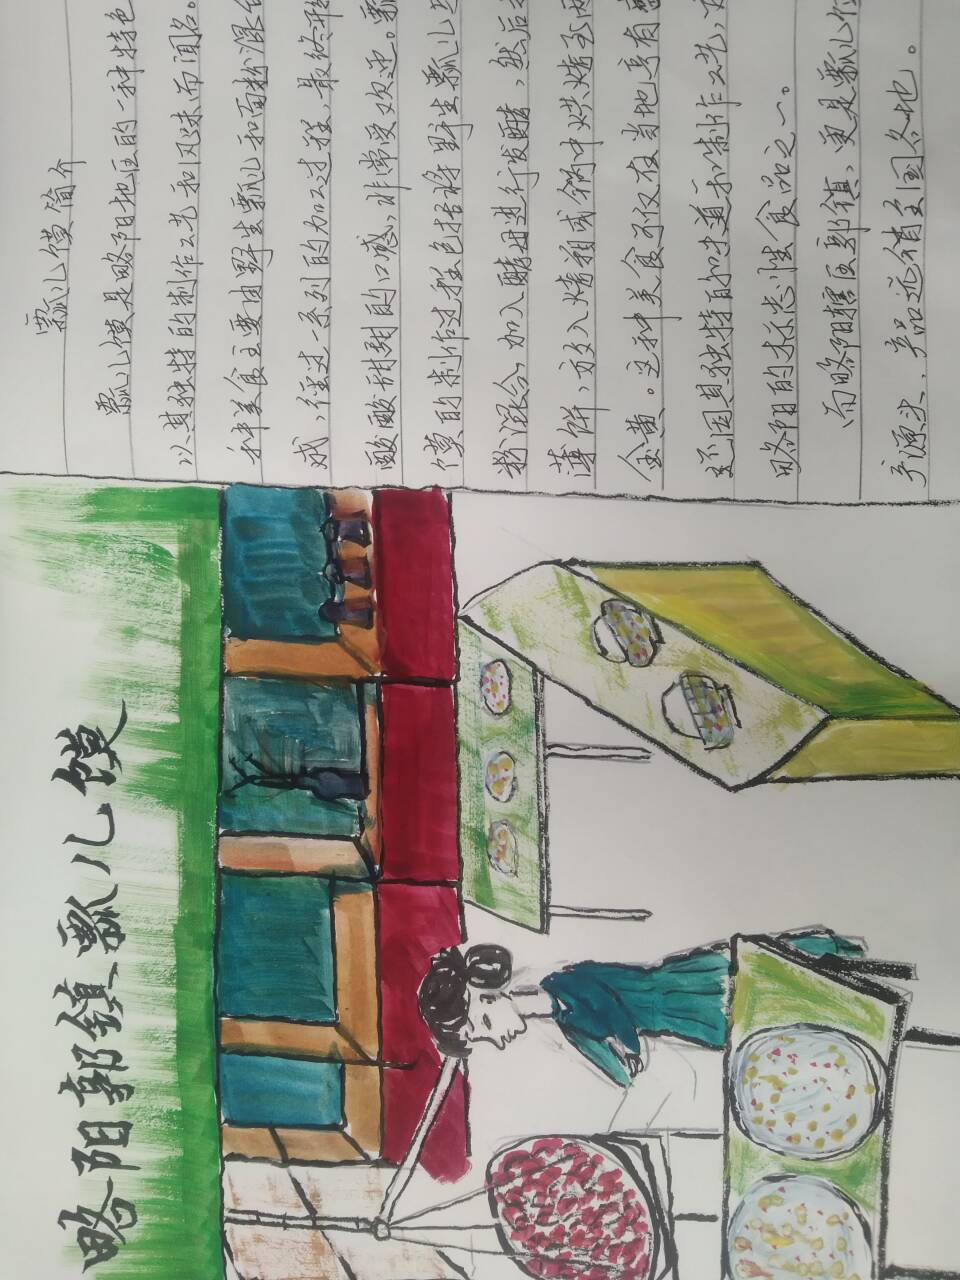 略阳郭镇瓢儿馍
瓢儿馍简介
瓢儿馍是略阳地区的一种特色
以其独特的制作工艺和风味而闻名。
种美食主要由野生瓢儿和面粉混合
成，经过一系列的加工过程，最终形
酸酸甜甜的口感，非常受欢迎。瓢
馍的制作过程包括将野生瓢儿与
粉混合，加入酵母进行发酵，然后
薄饼，放入烤箱或锅中烘烤到两
金黄。这种美食不仅在当地享有
还因其独特的味道和制作工艺，
略阳的标志性食品之一。
而略阳辖区郭镇，更是瓢儿
产源头，产品远销全国各地。